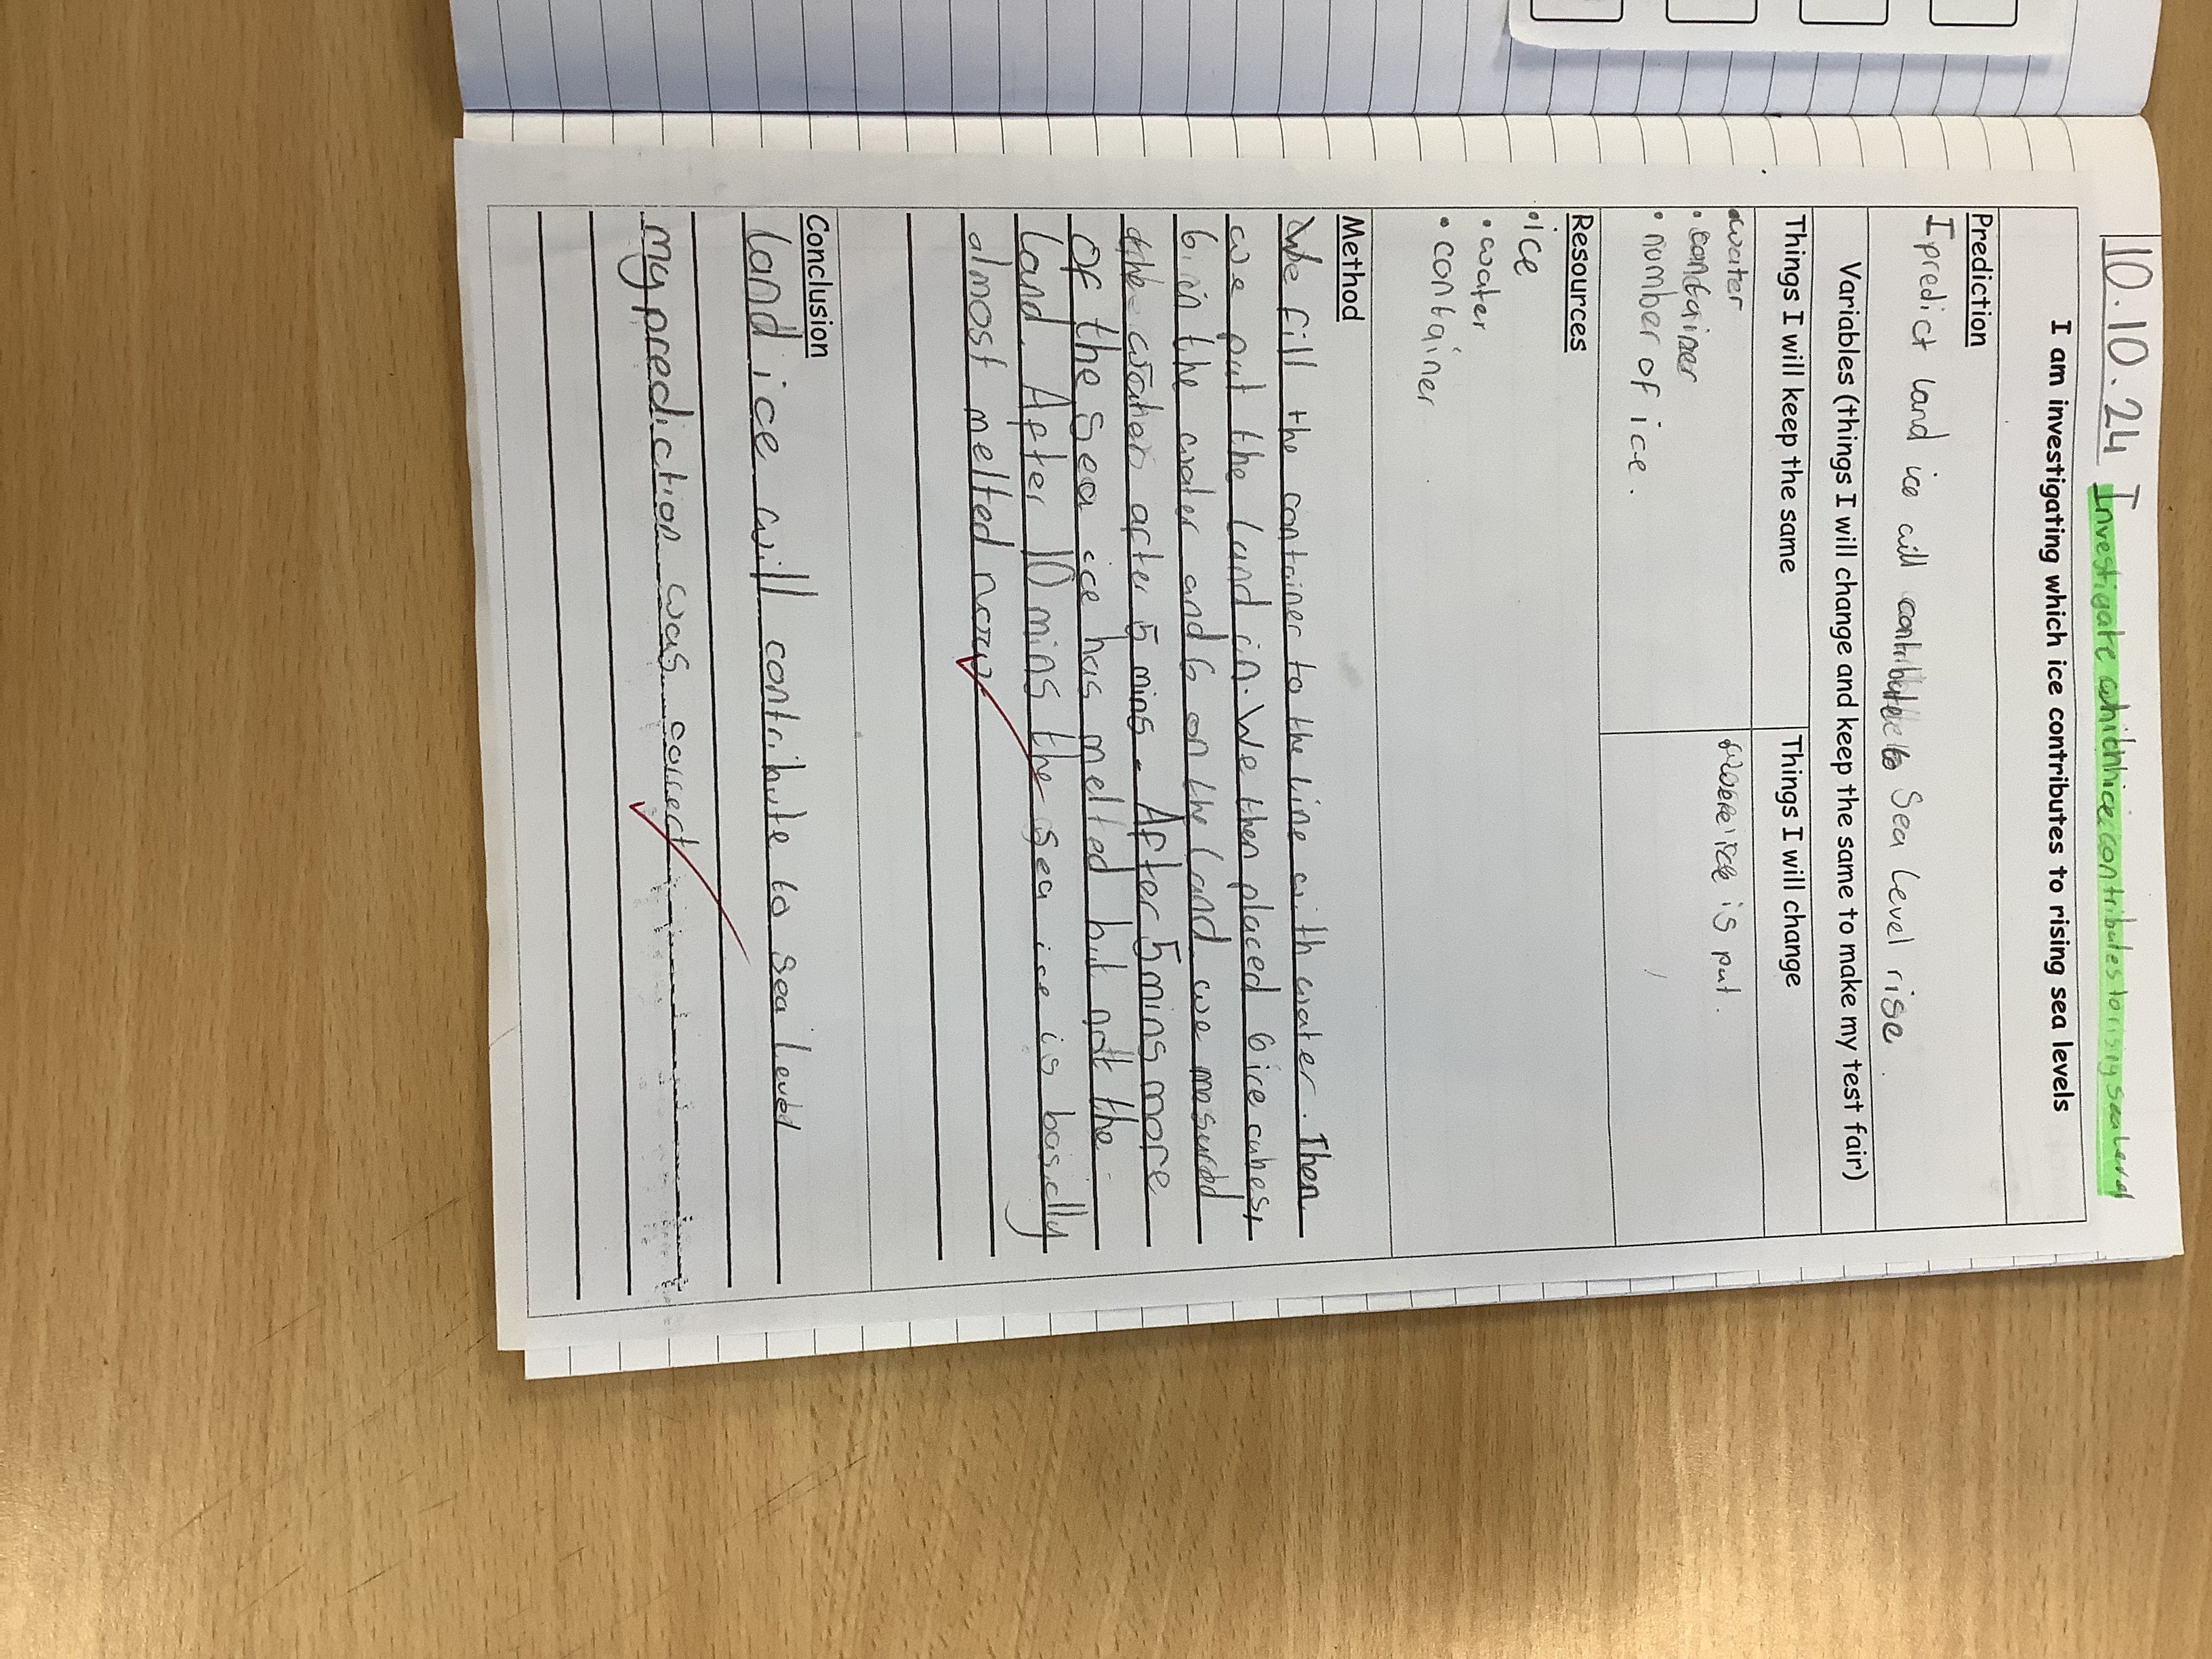 10.10.24 Investigate whichice contributes to rising sea level
I am investigating which ice contributes to rising sea levels
Prediction
I predict land ice will contribute to Sea Level rise.
Variables (things I will change and keep the same to make my test fair)
Things I will keep the same
Things I will change
• water
• container
• number of ice.
where ice is put.
Resources
• ice
• water
• container
Method
We fill the container to the line with water. Then
we put the land in. We then placed 6 ice cubes,
6 in the water and 6 on the land we mesured
the water after 5 mins. After 5 mins more
of the sea ice has melted but not the
land. After 10 mins the sea ice is basiclly
almost melted now
Conclusion
land ice will contribute to sea level
my prediction was correct